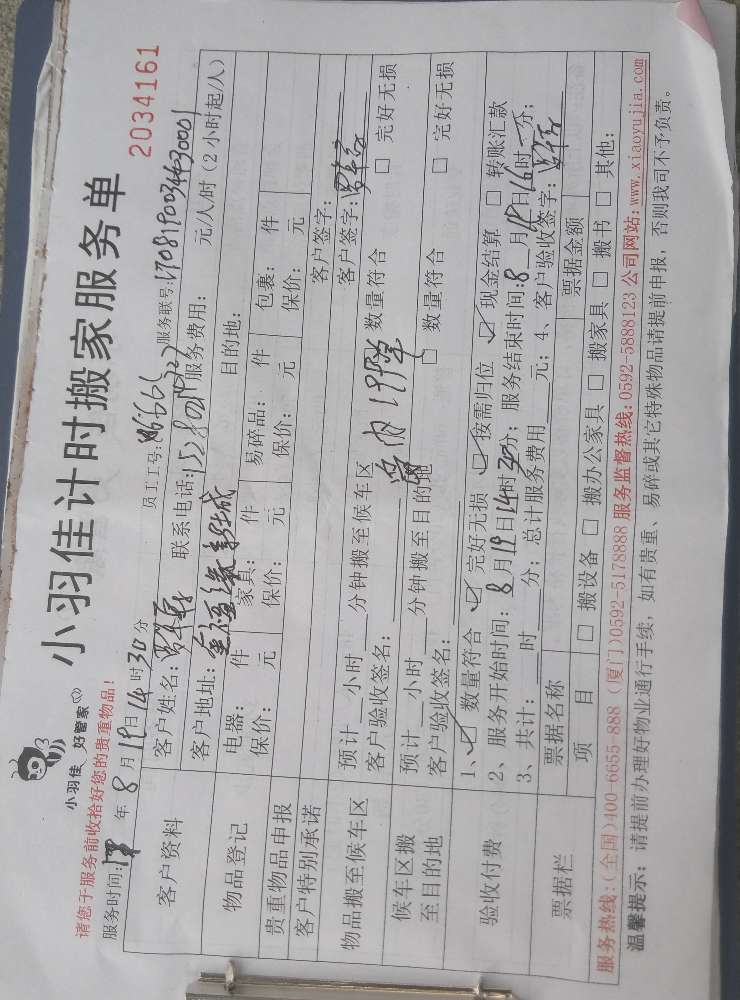 小羽佳 好管家
小羽佳计时搬家服务单
2034161
请您于服务前收拾好您的贵重物品!
服务时间: 年8月19日14时30分 员工工号: 服务联号:
客户资料
客户姓名: 联系电话: 服务费用: 元/人/时(2小时起/人)
客户地址: 目的地:
物品登记
电器: 件 家具: 件 易碎品: 件 包裹: 件
保价: 元 保价: 元 保价: 元 保价: 元
贵重物品申报
客户签字:
客户特别承诺
客户签字:
物品搬至候车区
预计 小时 分钟搬至候车区 数量符合 □ 完好无损
客户验收签名:
候车区搬至目的地
预计 小时 分钟搬至目的地 □ 数量符合 □ 完好无损
客户验收签名:
验收付费
1、☑ 数量符合 ☑ 完好无损 ☑ 按需归位 ☑ 现金结算 □ 转账汇款
2、服务开始时间: 8月19日14时30分; 服务结束时间: 8月 日16时 分;
3、共计: 时 分; 总计服务费用 元; 4、客户验收签字:
票据栏
票据名称 票据金额
项 目 □ 搬设备 □ 搬办公家具 □ 搬家具 □ 搬书 □ 其他:
服务热线:(全国)400-6655-888 (厦门)0592-5178888 服务监督热线:0592-5888123 公司网站:www.xiaoyujia.com
温馨提示:请提前办理好物业通行手续,如有贵重、易碎或其它特殊物品请提前申报,否则我司不予负责。